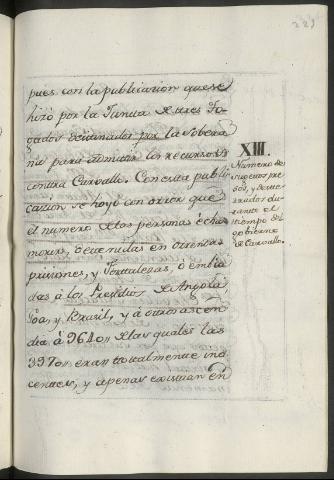 223
pues con la publicacion que se
hizo por la Junta de tres To-
gados destinados por la Sobera
na para admitir los recursos
contra Carvallo. Con esta publi
cazión se hoyó con orror que
el numero de las personas echas
morir, detenidas en
prisiones, y Fortalezas, ò embia
das à los Presidios de Angola
Goa, y Brasil, y à otros ascen
dia à 9640,, de las quales las
3970,, eran totalmente ino
centes, y apenas existian en
XIII.
Numero de
sugetos pre
sos, y dester
rados du
rante el
tiempo del
gobierno
de Carvallo.